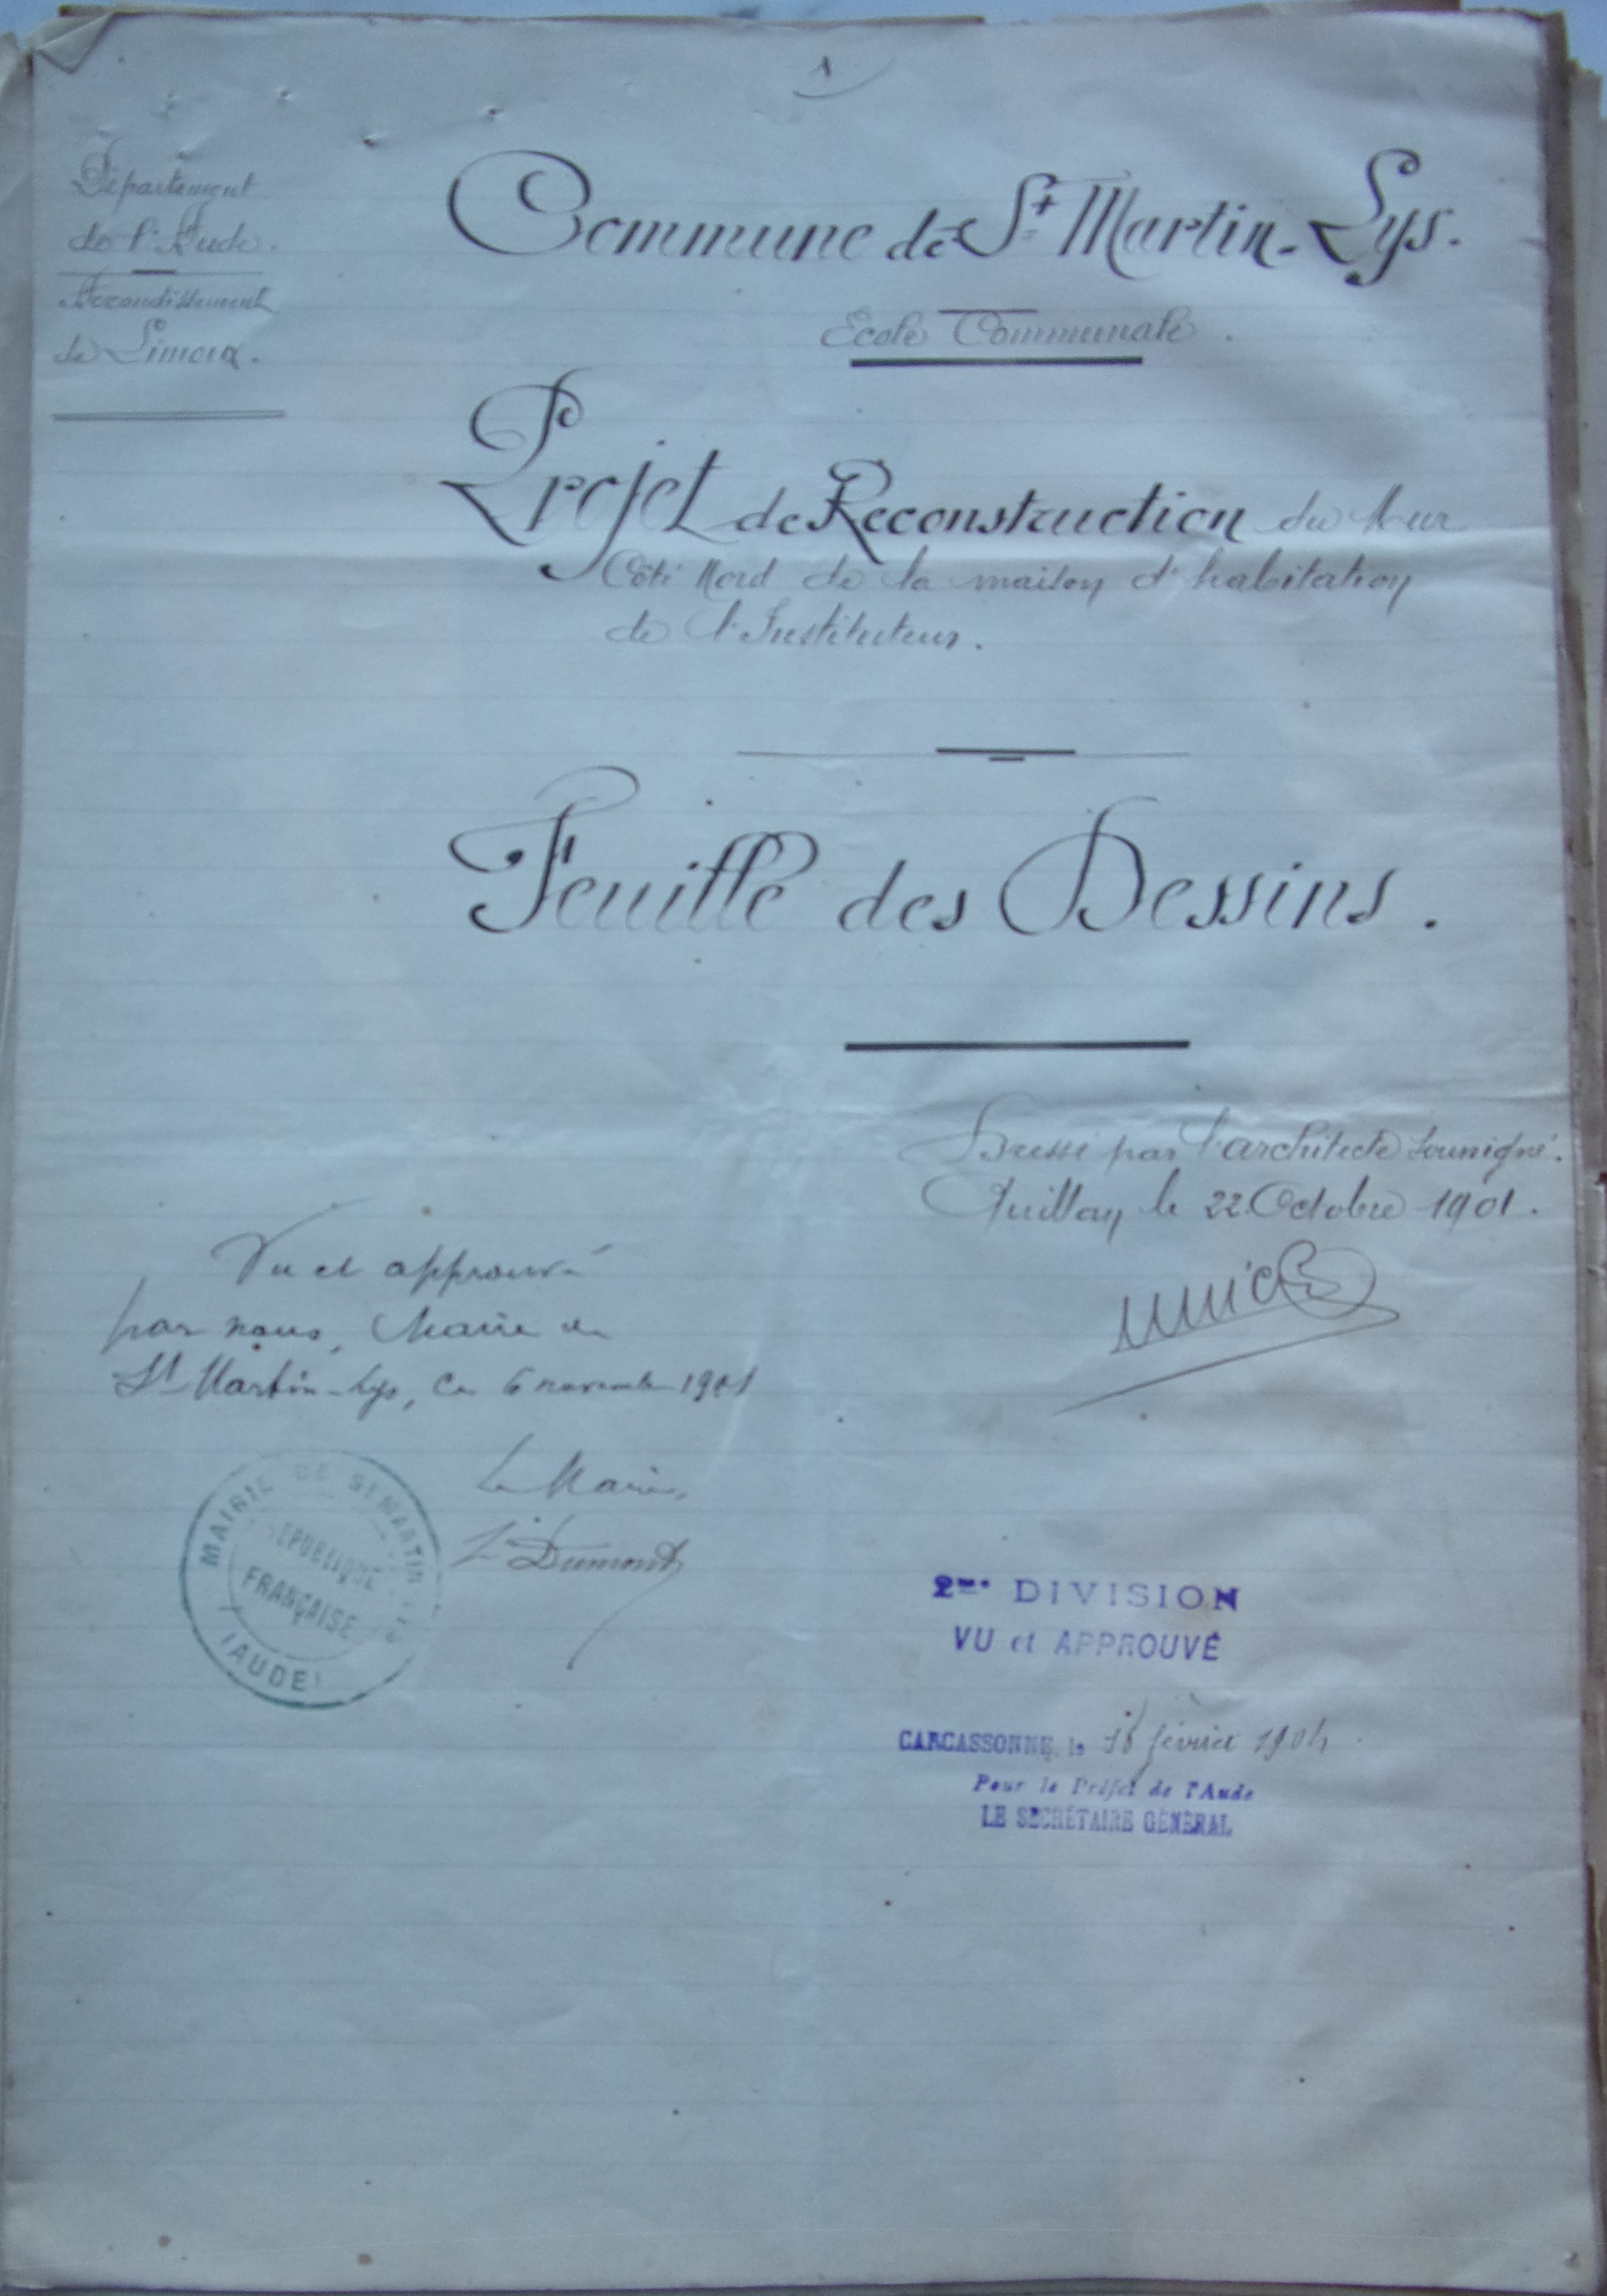 1
Département
de l'Aude.
Arrondissement
de Limoux.
Commune de St Martin-Lys.
Ecole Communale.
Projet de Reconstruction du Mur
Côté Nord de la maison d'habitation
de l'Instituteur.
Feuille des Dessins.
Dressé par l'architecte
Quillan le 22 Octobre 1901.
Vu et approuvé
par nous, Maire de
St Martin-Lys, ce 6 novembre 1901
Le Maire,
Dumont
MAIRIE DE ST MARTIN LYS
RÉPUBLIQUE
FRANÇAISE
(AUDE)
2me DIVISION
VU et APPROUVÉ
CARCASSONNE, le février 1904
Pour le Préfet de l'Aude
LE SECRÉTAIRE GÉNÉRAL